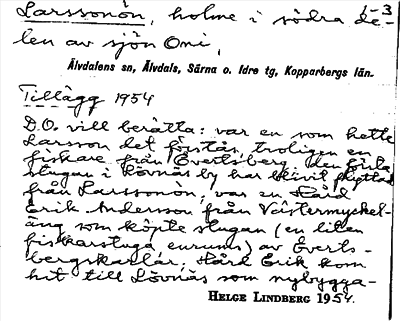 Larssonön, holme i södra de- 1-3
len av sjön Oni,
Älvdalens sn, Älvdals, Särna o. Idre tg, Kopparbergs län.
Tillägg 1954
D.O. vill berätta: var en som hette
Larsson det förstås, troligen en
fiskare från Evertsberg, den första
stugan i Lövnäs by har blivit flyttad
från Larssonön, var en Hård
Erik Andersson från Västermyckel-
äng som köpte stugan (en liten
fiskarstuga, enrums) av Everts-
bergskarlar. Hård Erik kom
hit till Lövnäs som nybygga-
HELGE LINDBERG 1954.